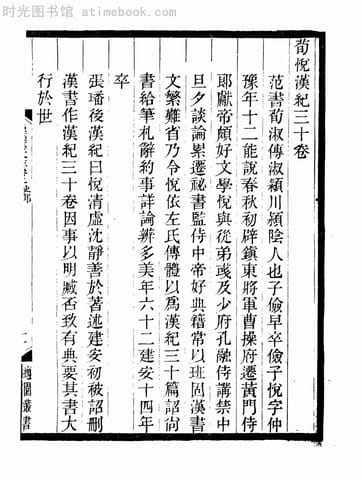 时光图书馆 atimebook.com
荀悅漢紀三十卷
范書荀淑傳淑潁川潁陰人也子儉早卒儉子悅字仲
豫年十二能說春秋初辟鎭東將軍曹操府遷黃門侍
郎獻帝頗好文學悅與從弟彧及少府孔融侍講禁中
旦夕談論累遷祕書監侍中帝好典籍常以班固漢書
文繁難省乃令悅依左氏傳體以爲漢紀三十篇詔尚
書給筆札辭約事詳論辨多美年六十二建安十四年
卒
張璠後漢紀曰悅清虛沈靜善於著述建安初被詔刪
漢書作漢紀三十卷因事以明臧否致有典要其書大
行於世
適園叢書